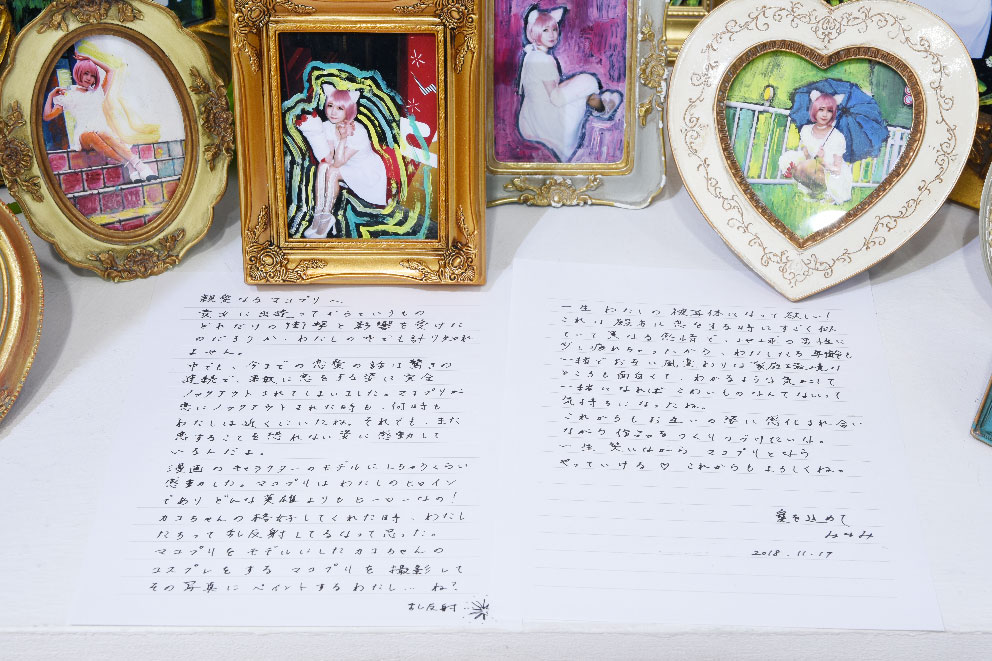 親愛なるマコプリへ
彼女に出逢ってからというもの
どれだけの衝撃と影響を受けた
のだろうか、わたしの中でも計り知れ
ません。
中でも、今までの恋愛の話は驚きの
連続で、素敵に恋をする姿に完全
ノックアウトされてしまいました。マコプリが
恋にノックアウトされた時も、何時も
わたしは近くにいたね。それでも、また
恋することを恐れない姿に感動して
いるんだよ。
漫画のキャラクターのモデルにしちゃうくらい
感動した。マコプリはわたしのヒロイン
でありどんな英雄よりもヒーローなの!
カコちゃんの格好してくれた時、わたし
たちって乱反射してるなって思った。
マコプリをモデルにしたカコちゃんの
コスプレをするマコプリを撮影して
その写真にペイントするわたし… ね?
乱反射
一生わたしの被写体になって欲しい!
これは殿方に恋をする時にすごく似
ていて異なる感情で、
少し疲れちゃったから、わたしたち
一緒でお互い風変わりな家庭
ところも面白くて、わかるような気がして
一緒になれば こわいものなんてないって
気持ちになったよね。
これからもお互いの姿に感化され合い
ながら作品をつくりつづけたいな。
一生笑いながら マコプリとなら
やっていける♡ これからもよろしくね。
愛を込めて
みそみ
2018.11.17